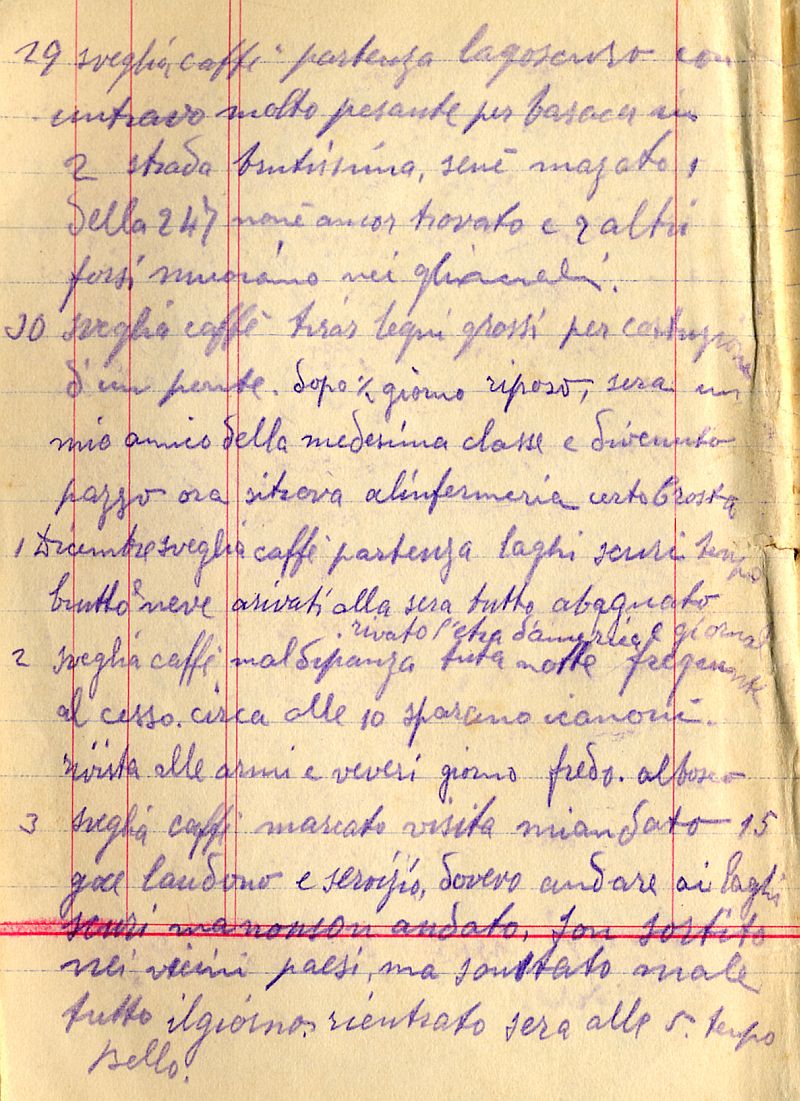 29 sveglia, caffe partenza lagoscuro con
untravo molto pesante per baraca in
2 strada brutissima, sené mazato 1
della 247 noné ancor trovato e 2 altri
forsi muoiano nei
30 sveglia caffé tirar legni grossi per costruzione
d'un ponte. dopo ½ giorno riposo, sera un
mio amico della medesima classe e divenuto
pazzo ora sitrova alinfermeria certo Crosta
1 Dicembre sveglia caffé partenza laghi scuri tempo
brutto e neve arivati alla sera tutto abagnato
. rivato l'etra d'americe e giornal
2 sveglia caffé mal dipanza tuta notte frequente
al cesso. circa alle 10 sparano icanoni.
rivista alle armi e veveri giorno fredo. albosco
3 sveglia caffé marcato visita miandato 15
goce laudono e servizio, dovevo andare ai laghi
scuri ma nonson andato. Son sortito
nei vicini paesi, ma sonstato male
tutto ilgiorno. rientrato sera alle 5. tempo
Bello.